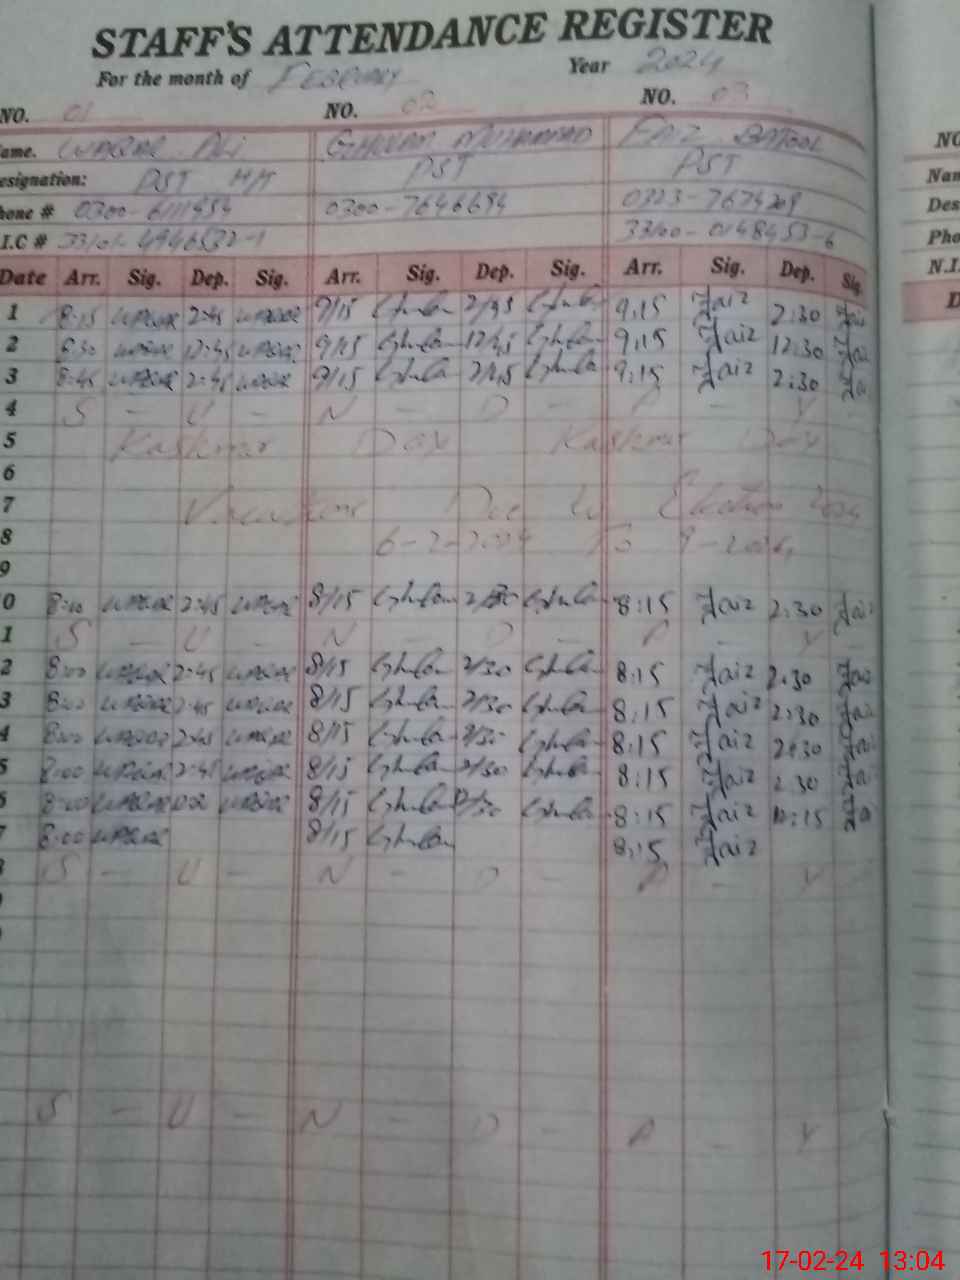 STAFF'S ATTENDANCE REGISTER
For the month of February Year 2024
NO. 01 NO. 02 NO. 03
ame. WAQAR ALI GHULAM MUHAMMAD FAIZ BATOOL
esignation: PST HM PST PST
hone # 0300-6111454 0300-7646694 0323-7674209
.I.C # 4946532-1 33100-0148453-6
Date Arr. Sig. Dep. Sig. Arr. Sig. Dep. Sig. Arr. Sig. Dep. Sig
1 8:15 WAQAR 2:45 WAQAR 9/15 Ghulam 2/45 Ghulam 9:15 Faiz 2:30 Fai
2 8:30 WAQAR 12:45 WAQAR 9/15 Ghulam 12/45 Ghulam 9:15 Faiz 12:30 Fai
3 8:45 WAQAR 2:45 WAQAR 9/15 Ghulam 2/45 Ghulam 9:15 Faiz 2:30 Fa
4 S - U - N - D - A - Y
5 Kashmir Day Kashmir Day
6
7 Vacations Due to Election 2024
8 6-2-2024 To 9-2024
9
0 8:00 WAQAR 2:45 WAQAR 8/15 Ghulam 2/30 Ghulam 8:15 Faiz 2:30 Fai
1 S - U - N - D - A - Y
2 8:00 WAQAR 2:45 WAQAR 8/15 Ghulam 2/30 Ghulam 8:15 Faiz 2:30 Fai
3 8:00 WAQAR 2:45 WAQAR 8/15 Ghulam 2/30 Ghulam 8:15 Faiz 2:30 Fai
4 8:00 WAQAR 2:45 WAQAR 8/15 Ghulam 2/30 Ghulam 8:15 Faiz 2:30 Fai
5 8:00 WAQAR 2:45 WAQAR 8/15 Ghulam 2/30 Ghulam 8:15 Faiz 2:30 Fai
6 8:00 WAQAR WAQAR 8/15 Ghulam Ghulam 8:15 Faiz 10:15 Fa
7 8:00 WAQAR 8/15 Ghulam 8:15 Faiz
S - U - N - D - A - Y
S - U - N - D - A - Y
NO
Nam
Des
Pho
N.I.
D
17-02-24 13:04